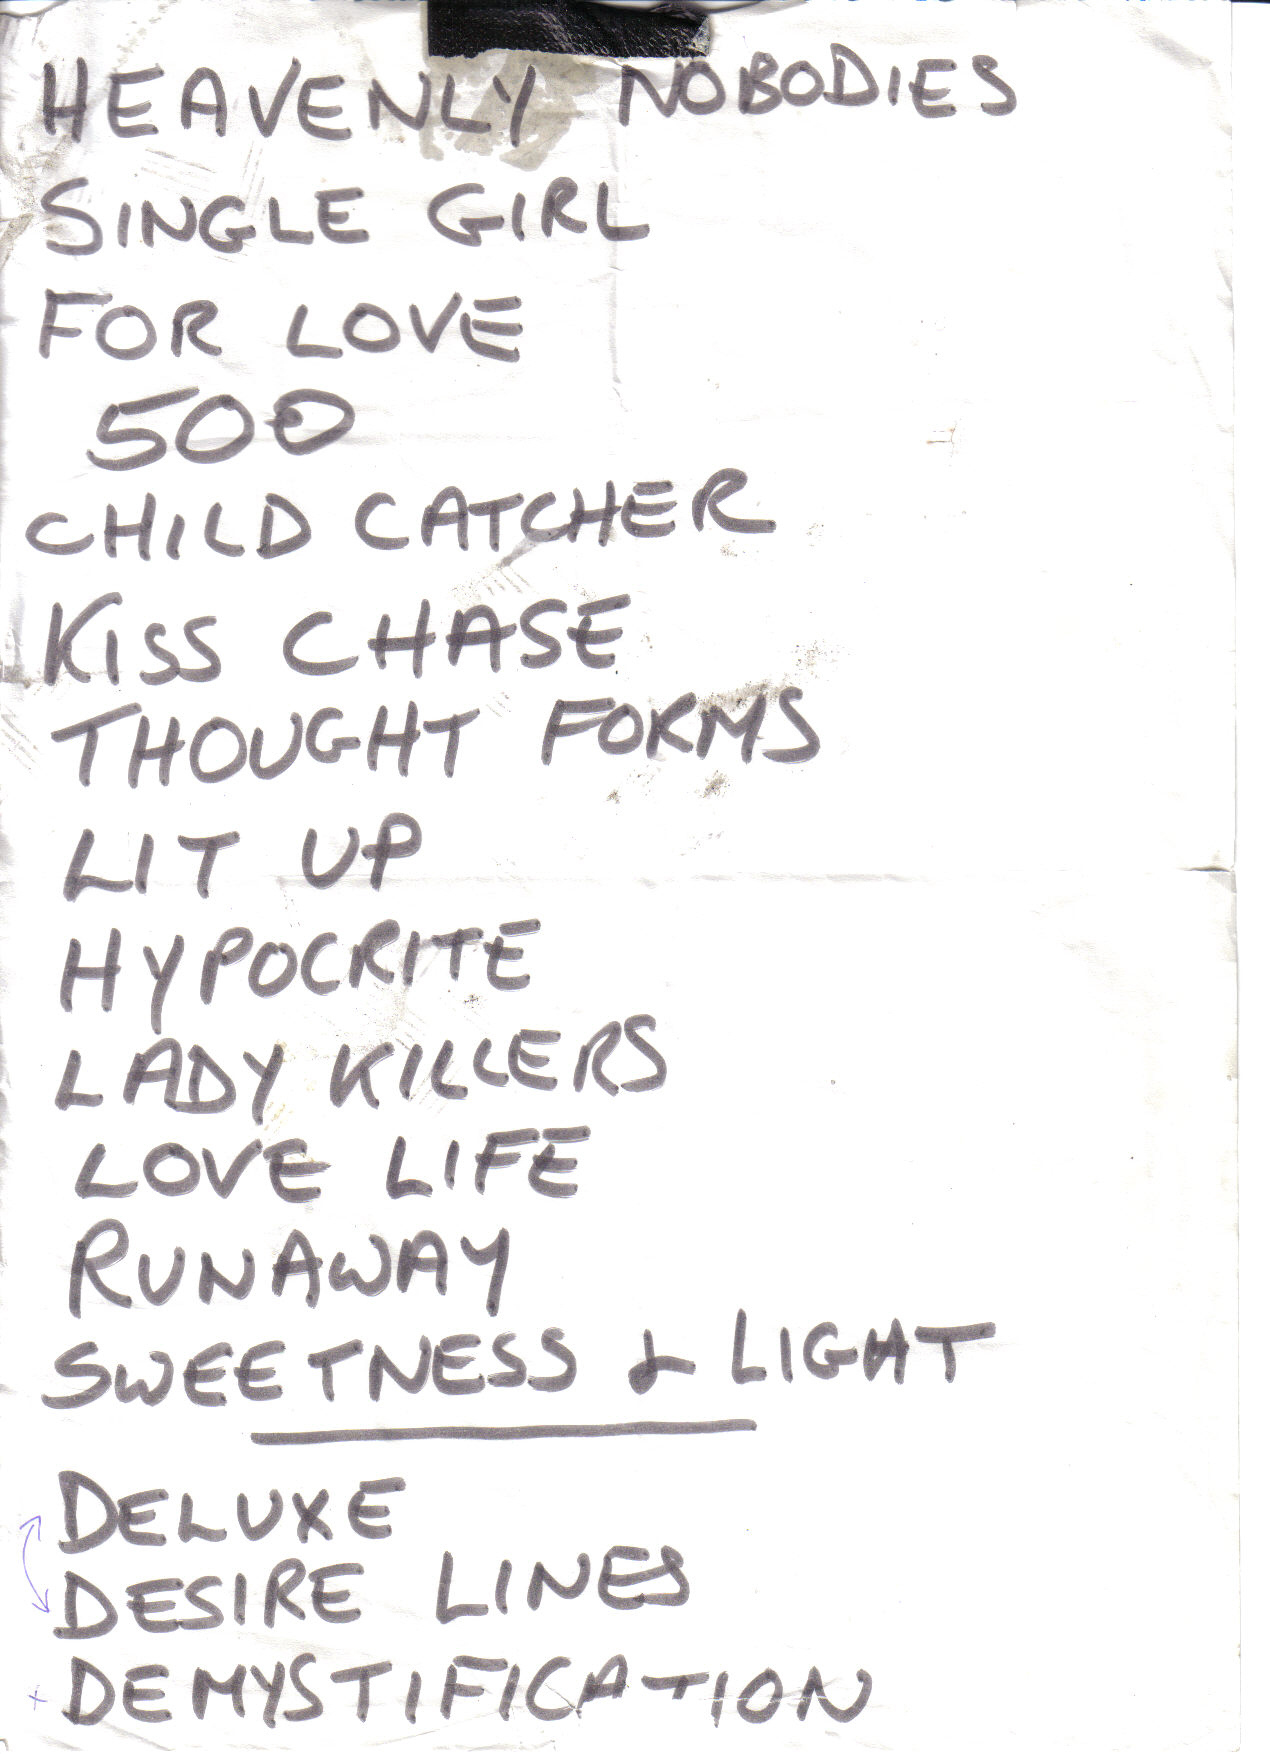 HEAVENLY NOBODIES
SINGLE GIRL
FOR LOVE
500
CHILD CATCHER
KISS CHASE
THOUGHT FORMS
LIT UP
HYPOCRITE
LADY KILLERS
LOVE LIFE
RUNAWAY
SWEETNESS & LIGHT
DELUXE
DESIRE LINES
+ DEMYSTIFICATION